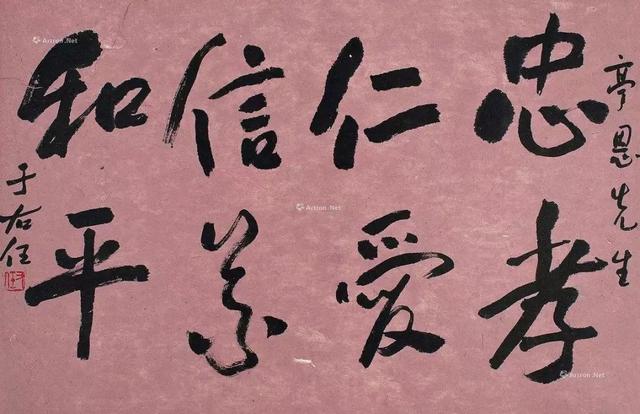 亭恩先生
忠孝
仁愛
信義
和平
于右任
Artron.Net
Artron.Net
Artron.Net